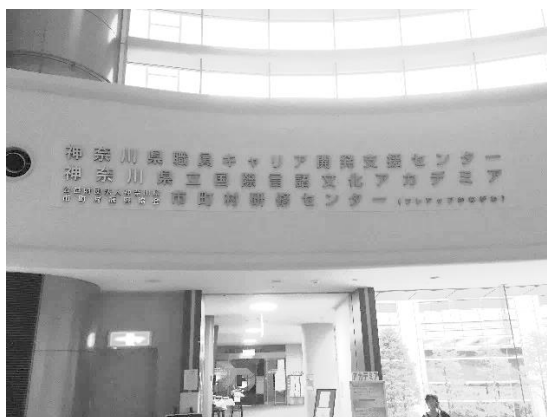 神奈川県職員キャリア開発支援センター
神奈川県立国際言語文化アカデミア
公益財団法人神奈川県
市町村振興協会 市町村研修センター